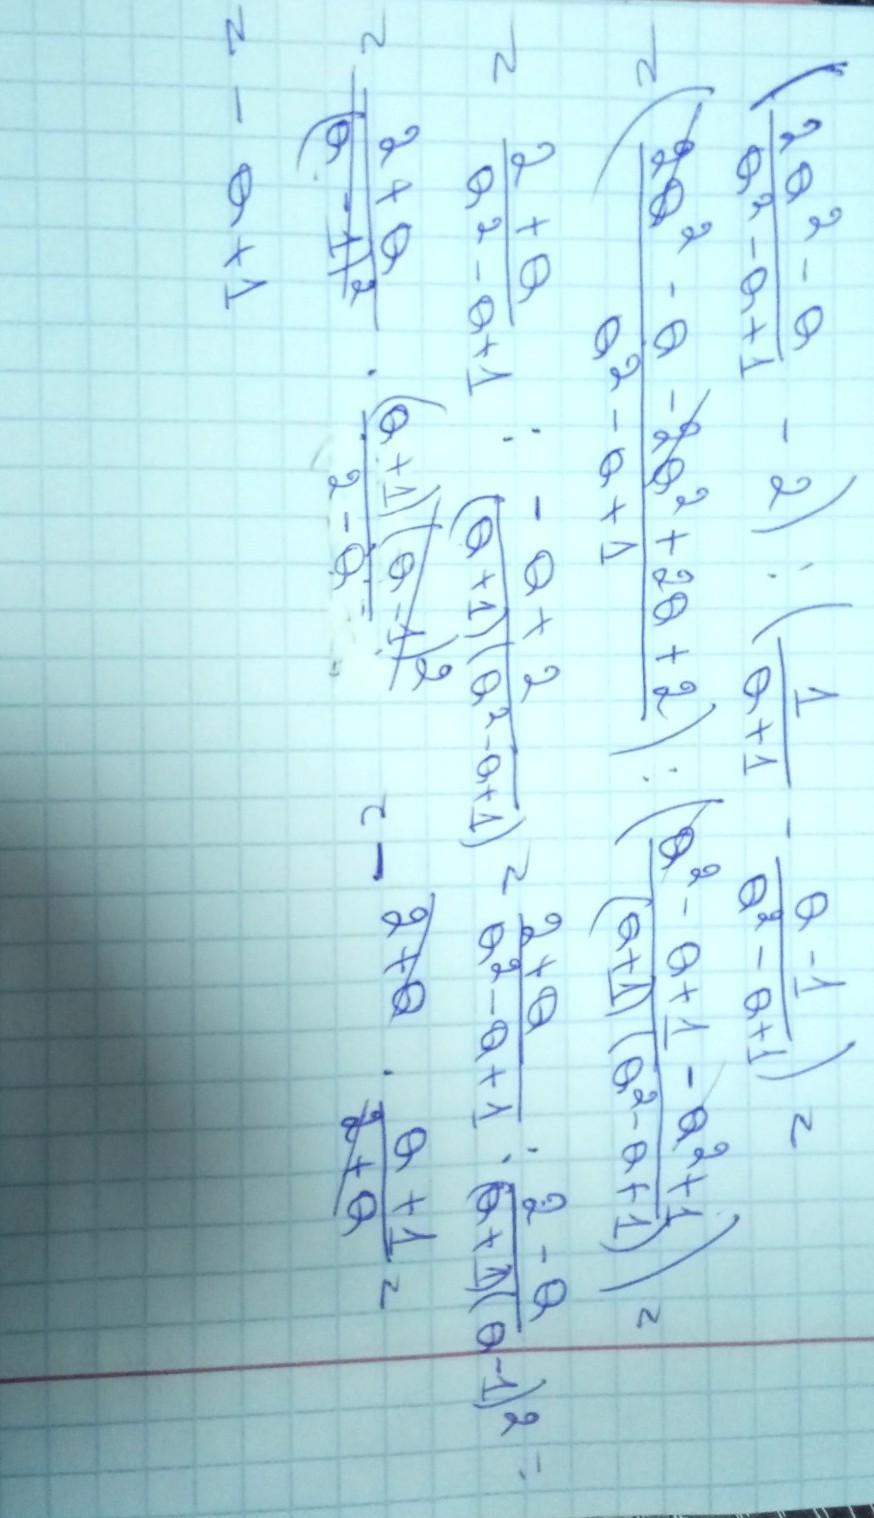 (2a² - a / a² - a + 1 - 2) : (1 / a + 1 - a - 1 / a² - a + 1) =
= (2a² - a - 2a² + 2a + 2 / a² - a + 1) : (a² - a + 1 - a² + 1 / (a + 1)(a² - a + 1)) =
= 2 + a / a² - a + 1 : - a + 2 / (a + 1)(a² - a + 1) = 2 + a / a² - a + 1 : 2 - a / (a + 1)(a - 1)² =
= 2 + a / (a - 1)² · (a + 1)(a - 1)² / 2 - a = = - 2 + a · a + 1 / 2 + a =
= - a + 1